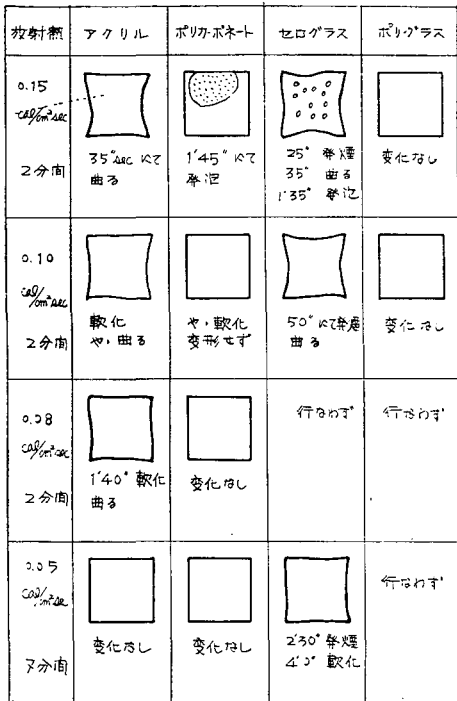 放射熱 アクリル ポリカーボネート セログラス ポリ・グラス
0.15
cal/cm²sec
2分間
35"secにて
曲る
1'45"にて
発泡
25" 発煙
35" 曲る
1'35" 発泡
変化なし
0.10
cal/cm²sec
2分間
軟化
やゝ曲る
やゝ軟化
変形せず
50"にて発煙
曲る
変化なし
0.08
cal/cm²sec
2分間
1'40" 軟化
曲る
変化なし
行なわず
行なわず
0.05
cal/cm²sec
7分間
変化なし
変化なし
2'30" 発煙
4'0" 軟化
行なわず